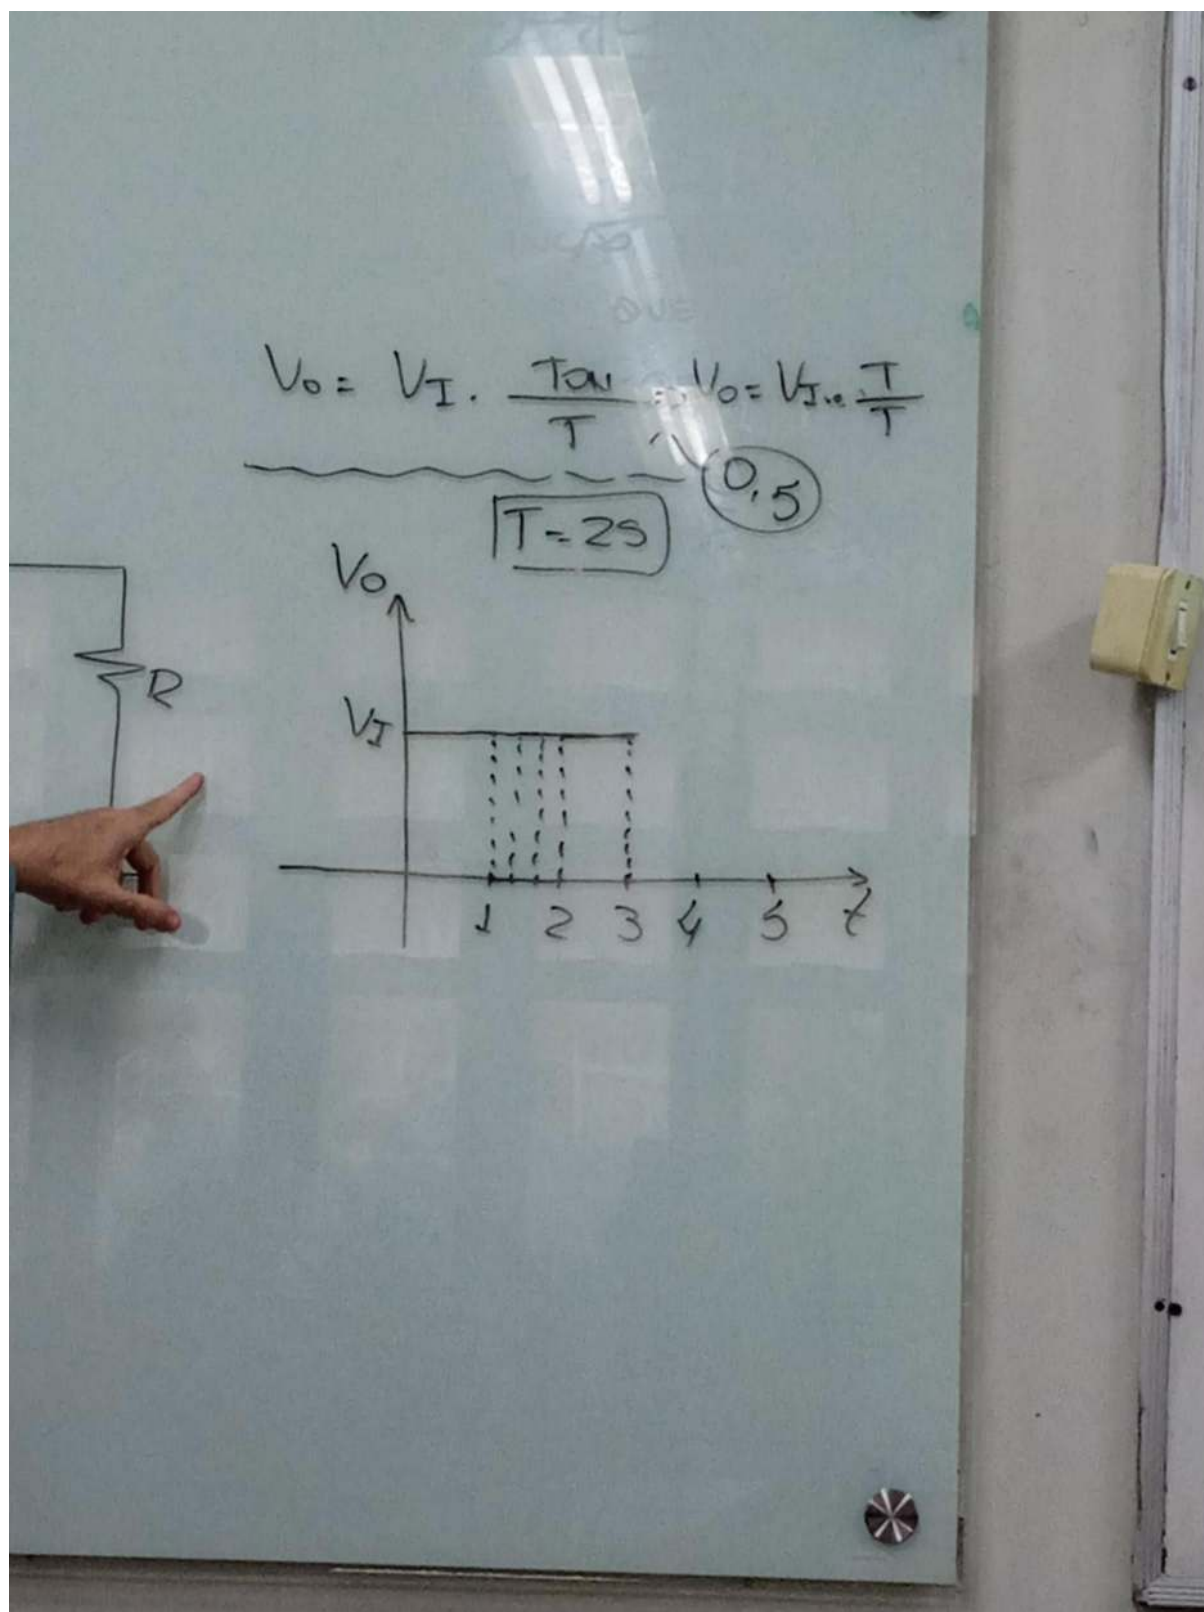 QUE
Vo = VI . TON / T = Vo = VI . T / T
0,5
T = 2S
Vo
R
VI
1 2 3 4 5 t